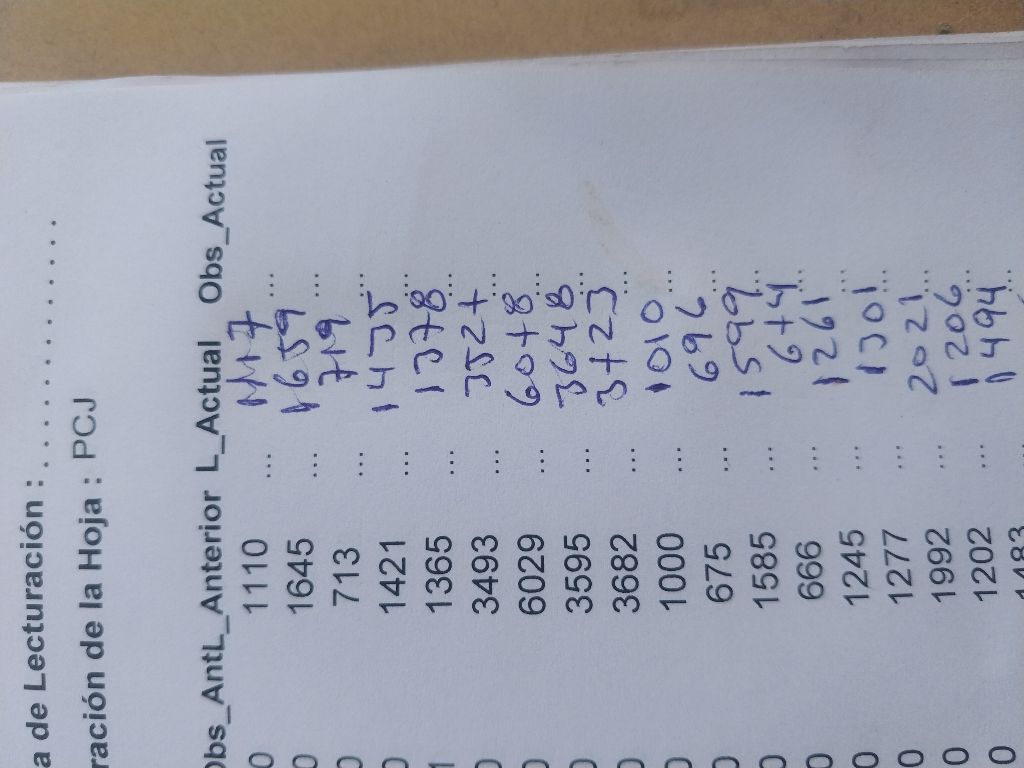 a de Lecturación : . . . . . . . . . . . . .
ración de la Hoja : PCJ
Obs_Ant L_Anterior L_Actual Obs_Actual
0 1110 ... 1117 ...
0 1645 ... 1659 ...
0 713 ... 719
0 1421 ... 1435 ...
1 1365 ... 1378 ...
0 3493 ... 3527 ...
0 6029 ... 6078 ...
0 3595 ... 3648 ...
0 3682 ... 3723 ...
0 1000 ... 1010 ...
0 675 ... 696 ...
0 1585 ... 1599 ...
0 666 ... 674 ...
0 1245 ... 1261 ...
0 1277 ... 1301 ...
0 1992 ... 2021 ...
0 1202 ... 1206 ...
0 1483 1494 ...